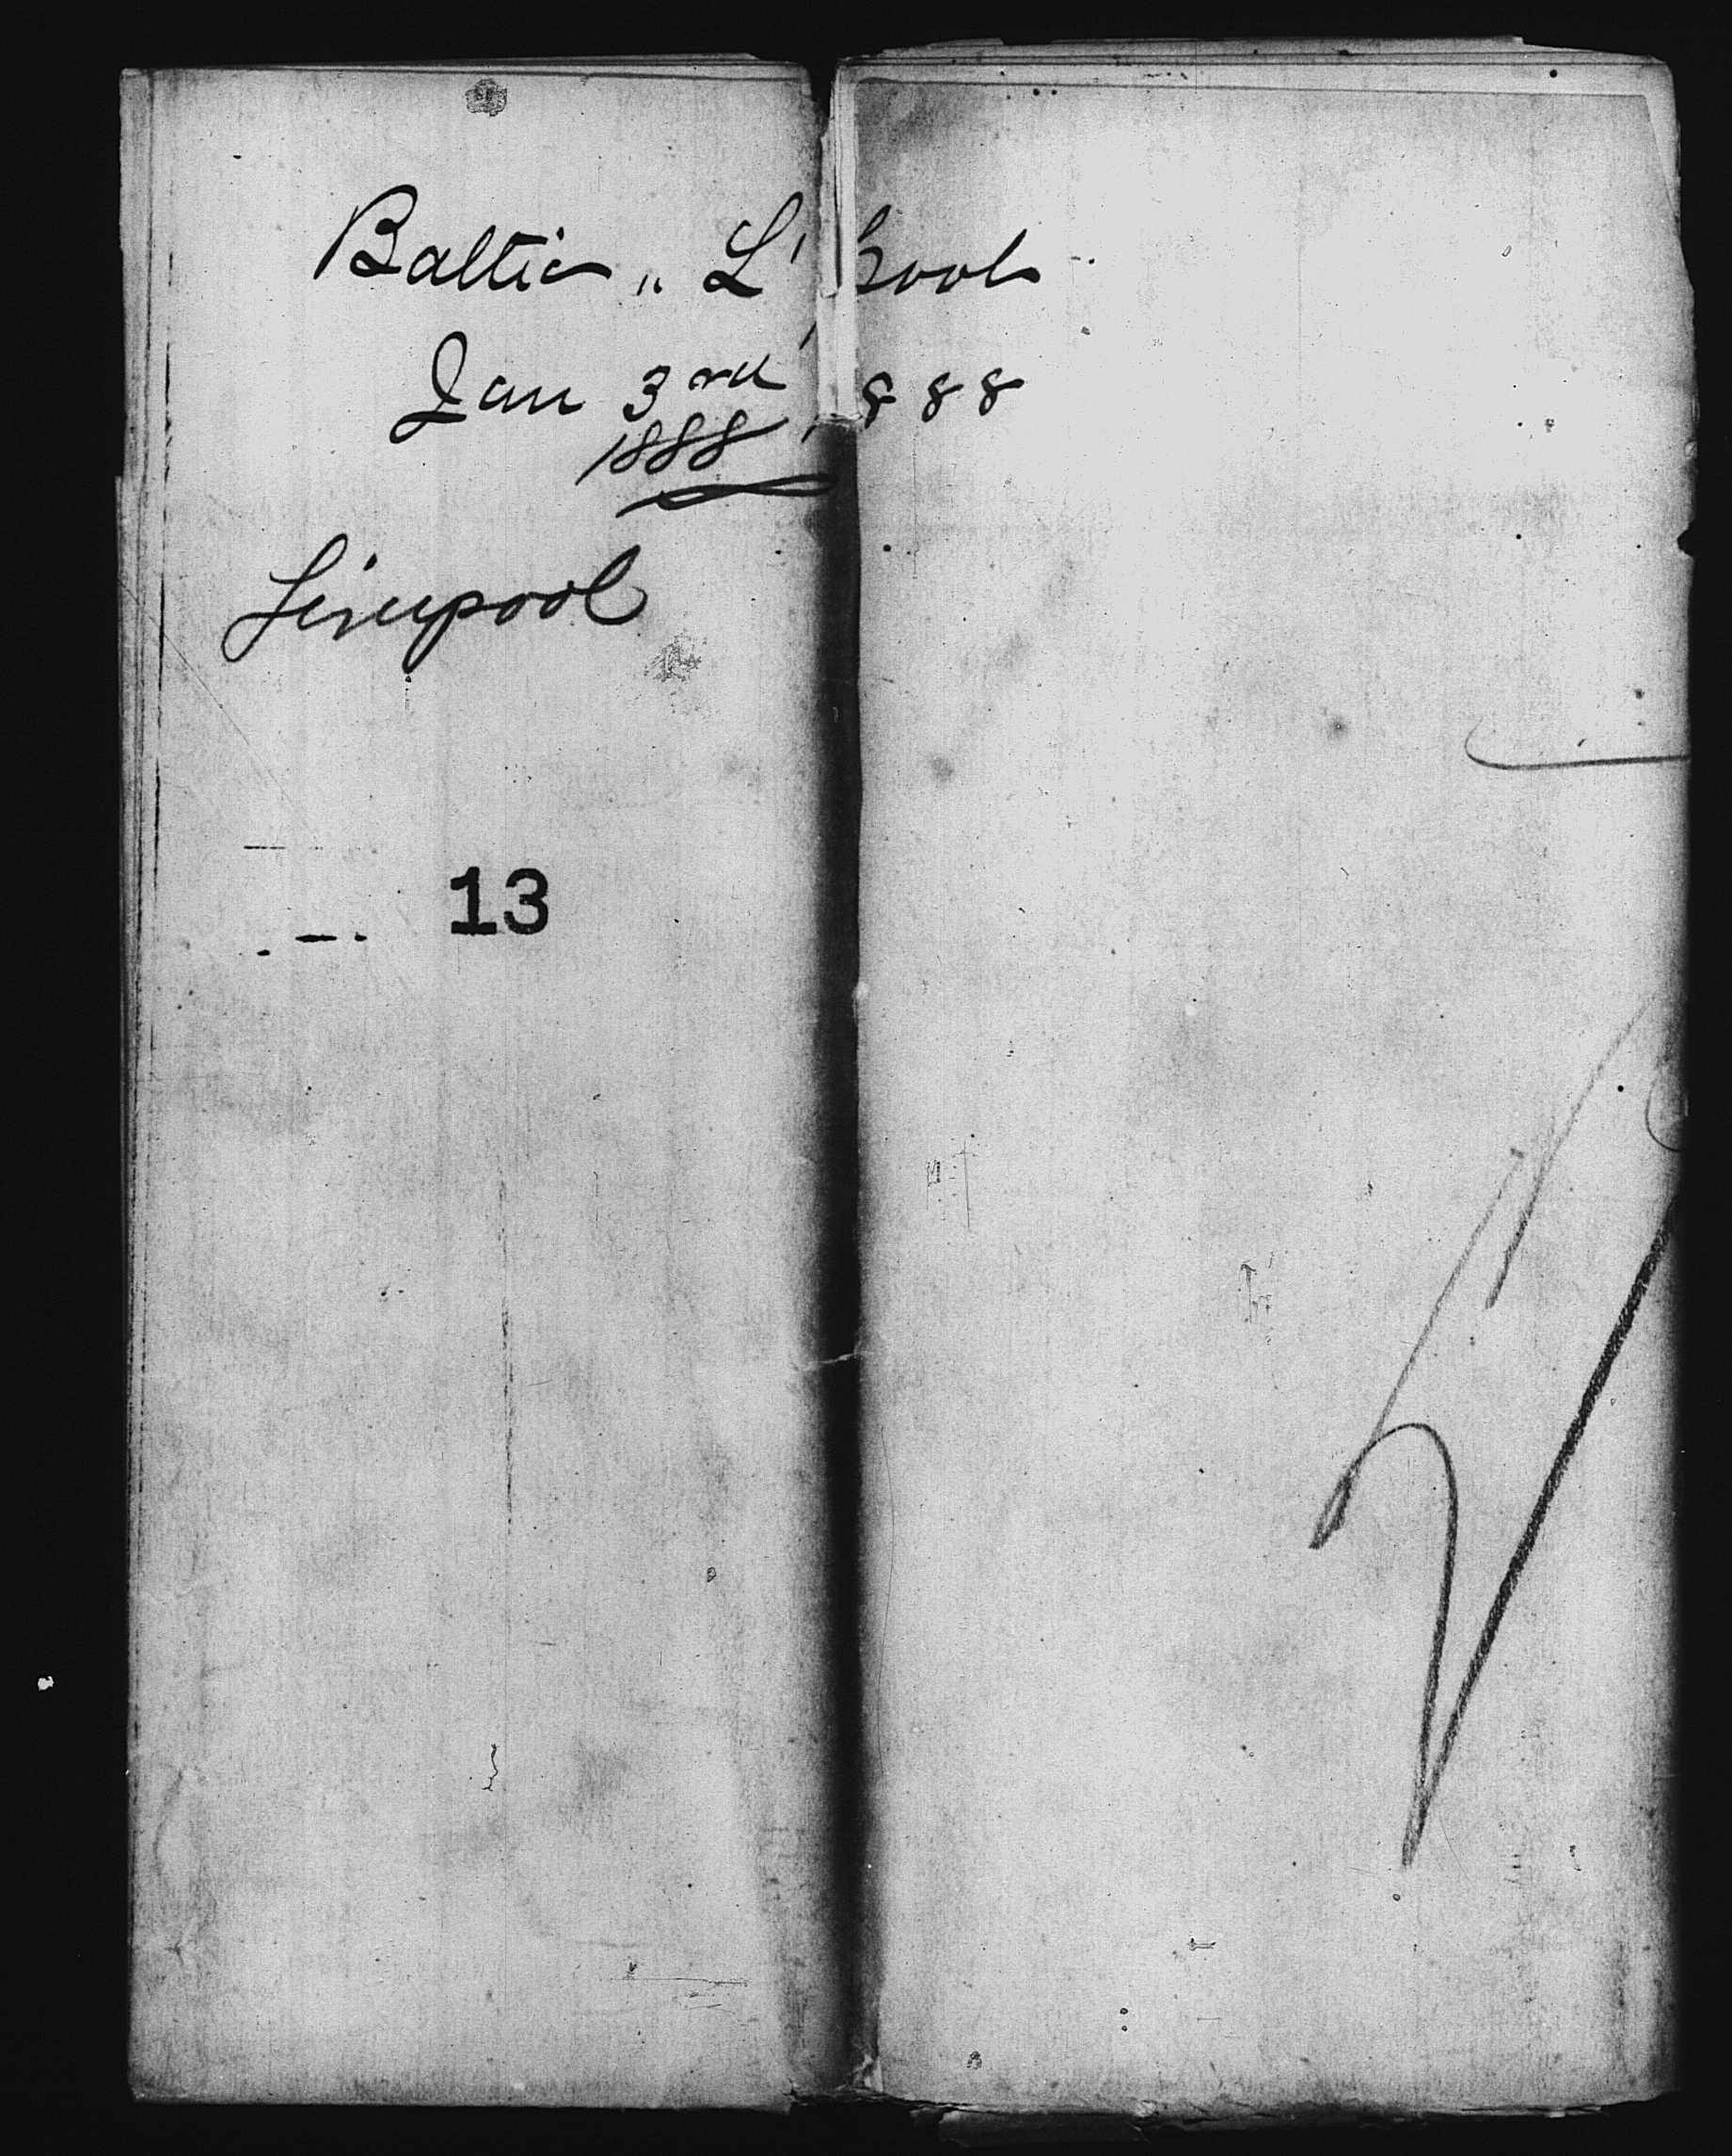 Baltic „ L'pool
Jan 3rd 1888
1888
Liverpool
13